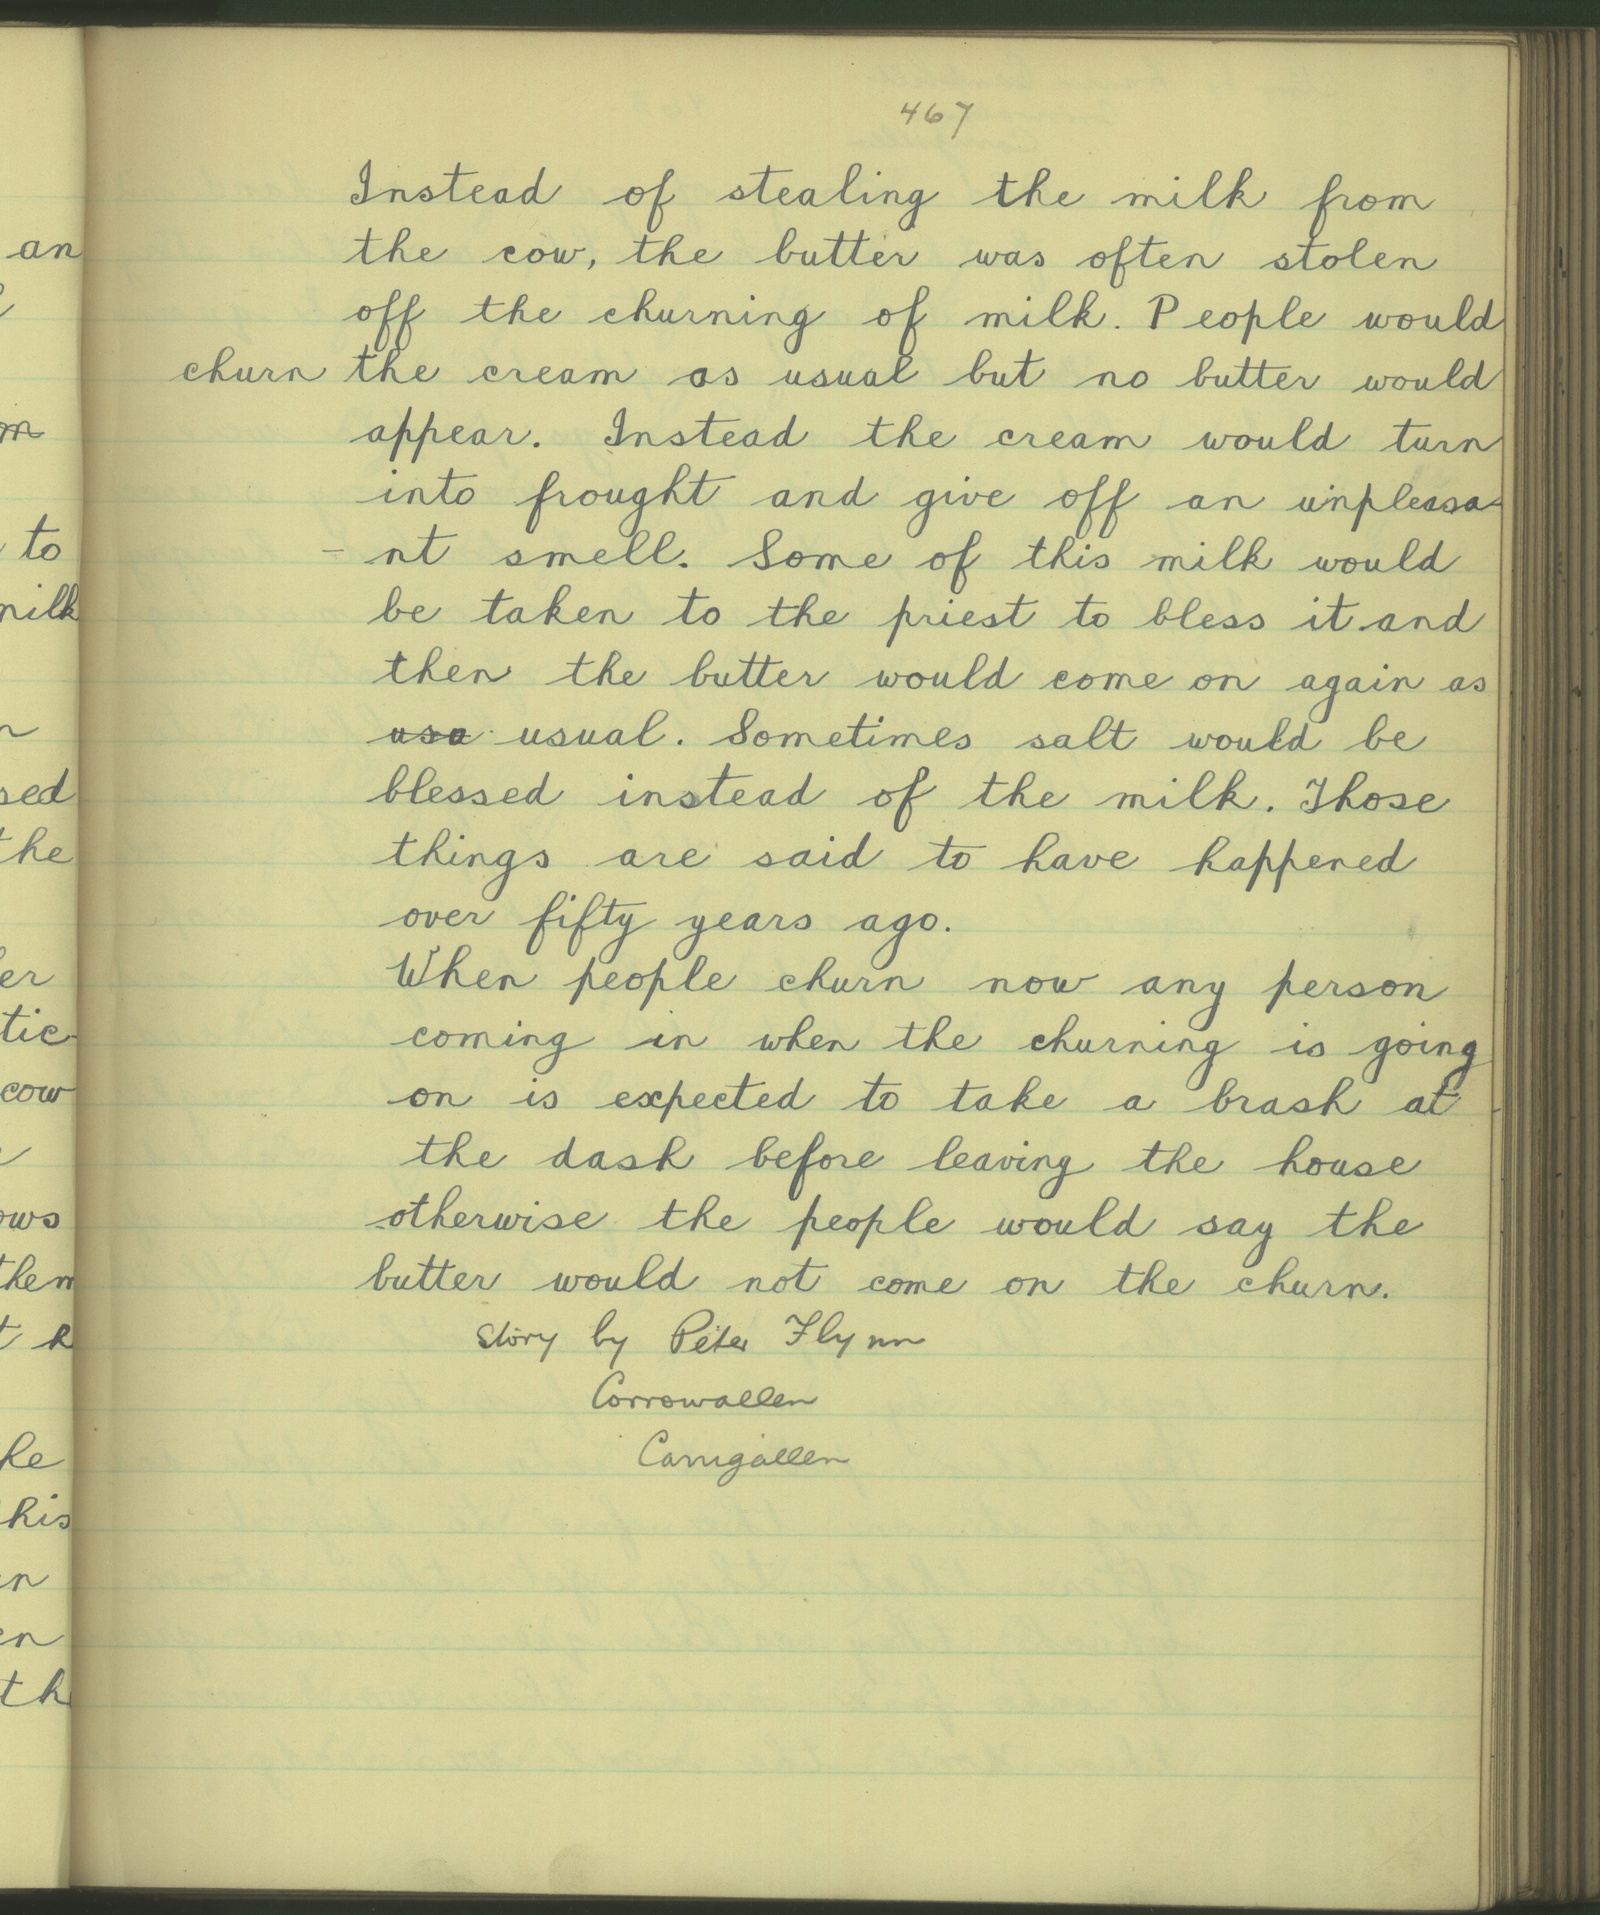 467
Instead of stealing the milk from
the cow, the butter was often stolen
off the churning of milk. People would
churn the cream as usual but no butter would
appear. Instead the cream would turn
into frought and give off an unpleasa-
- nt smell. Some of this milk would
be taken to the priest to bless it and
then the butter would come on again as
usa usual. Sometimes salt would be
blessed instead of the milk. Those
things are said to have happened
over fifty years ago.
When people churn now any person
coming in when the churning is going
on is expected to take a brash at
the dash before leaving the house
otherwise the people would say the
butter would not come on the churn.
Story by Peter Flynn
Corrowallen
Carrigallen